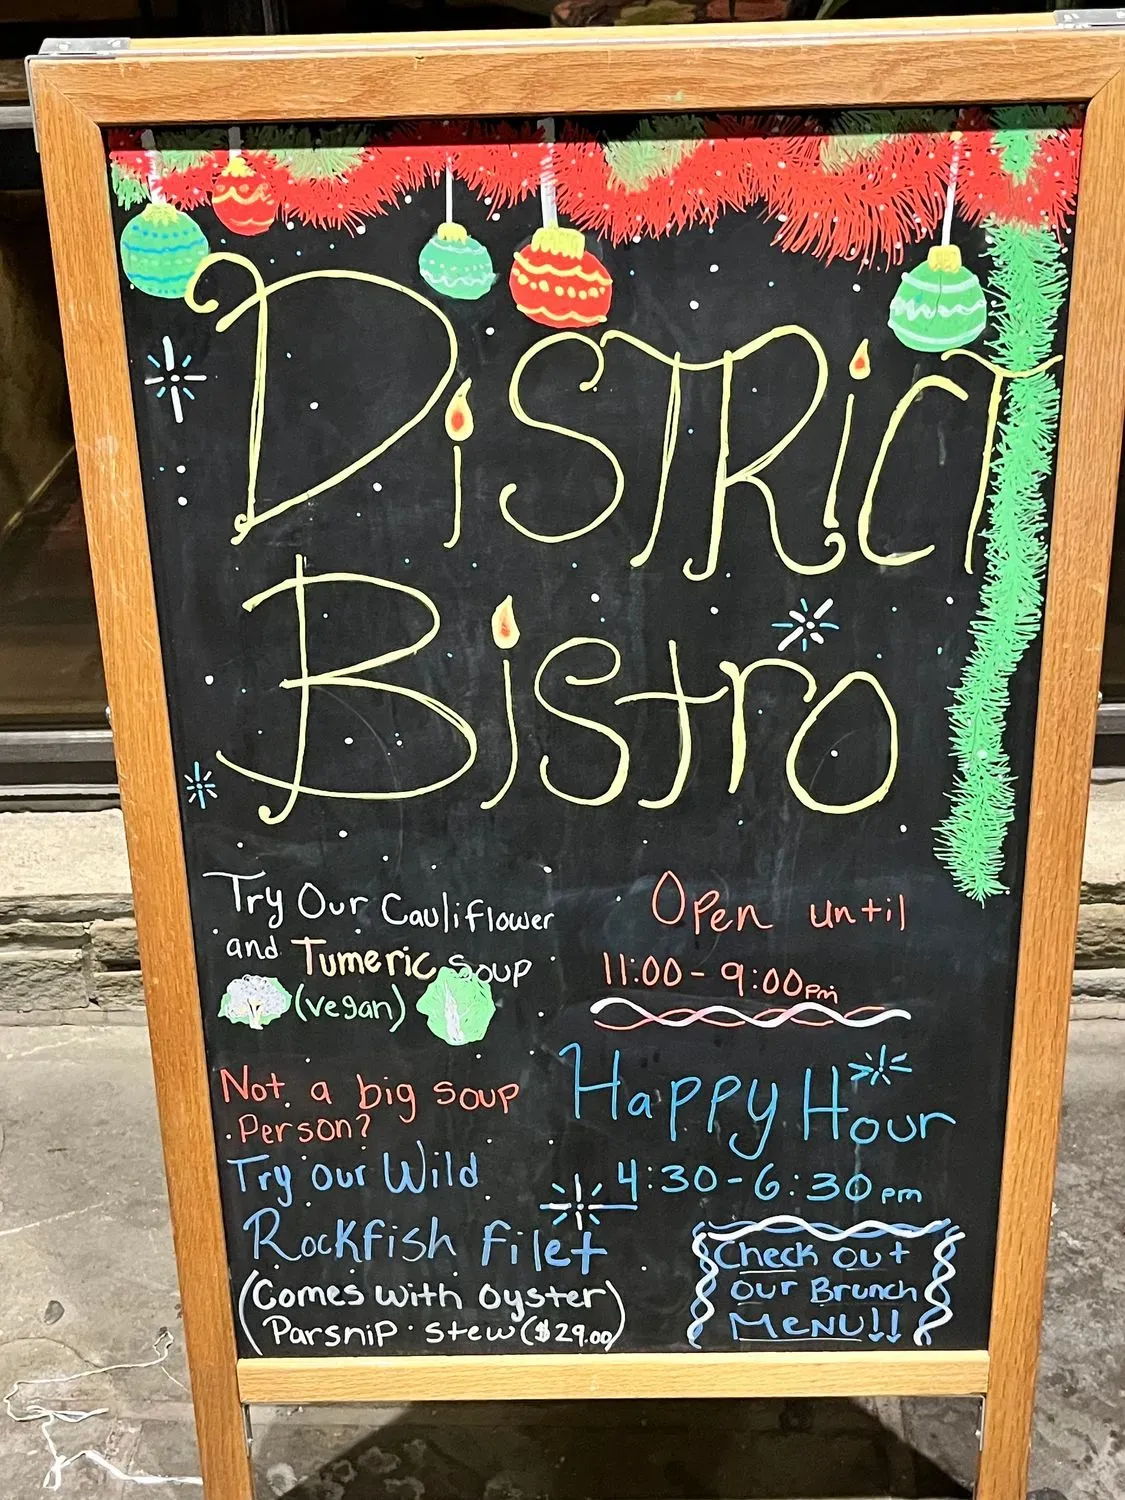 District
Bistro
Try Our Cauliflower
and Tumeric Soup
(vegan)
Not a big soup
Person?
Try our Wild
Rockfish filet
(Comes with oyster
Parsnip stew ($29.00)
Open until
11:00-9:00pm
Happy Hour
4:30-6:30pm
Check out
our Brunch
MENU!!